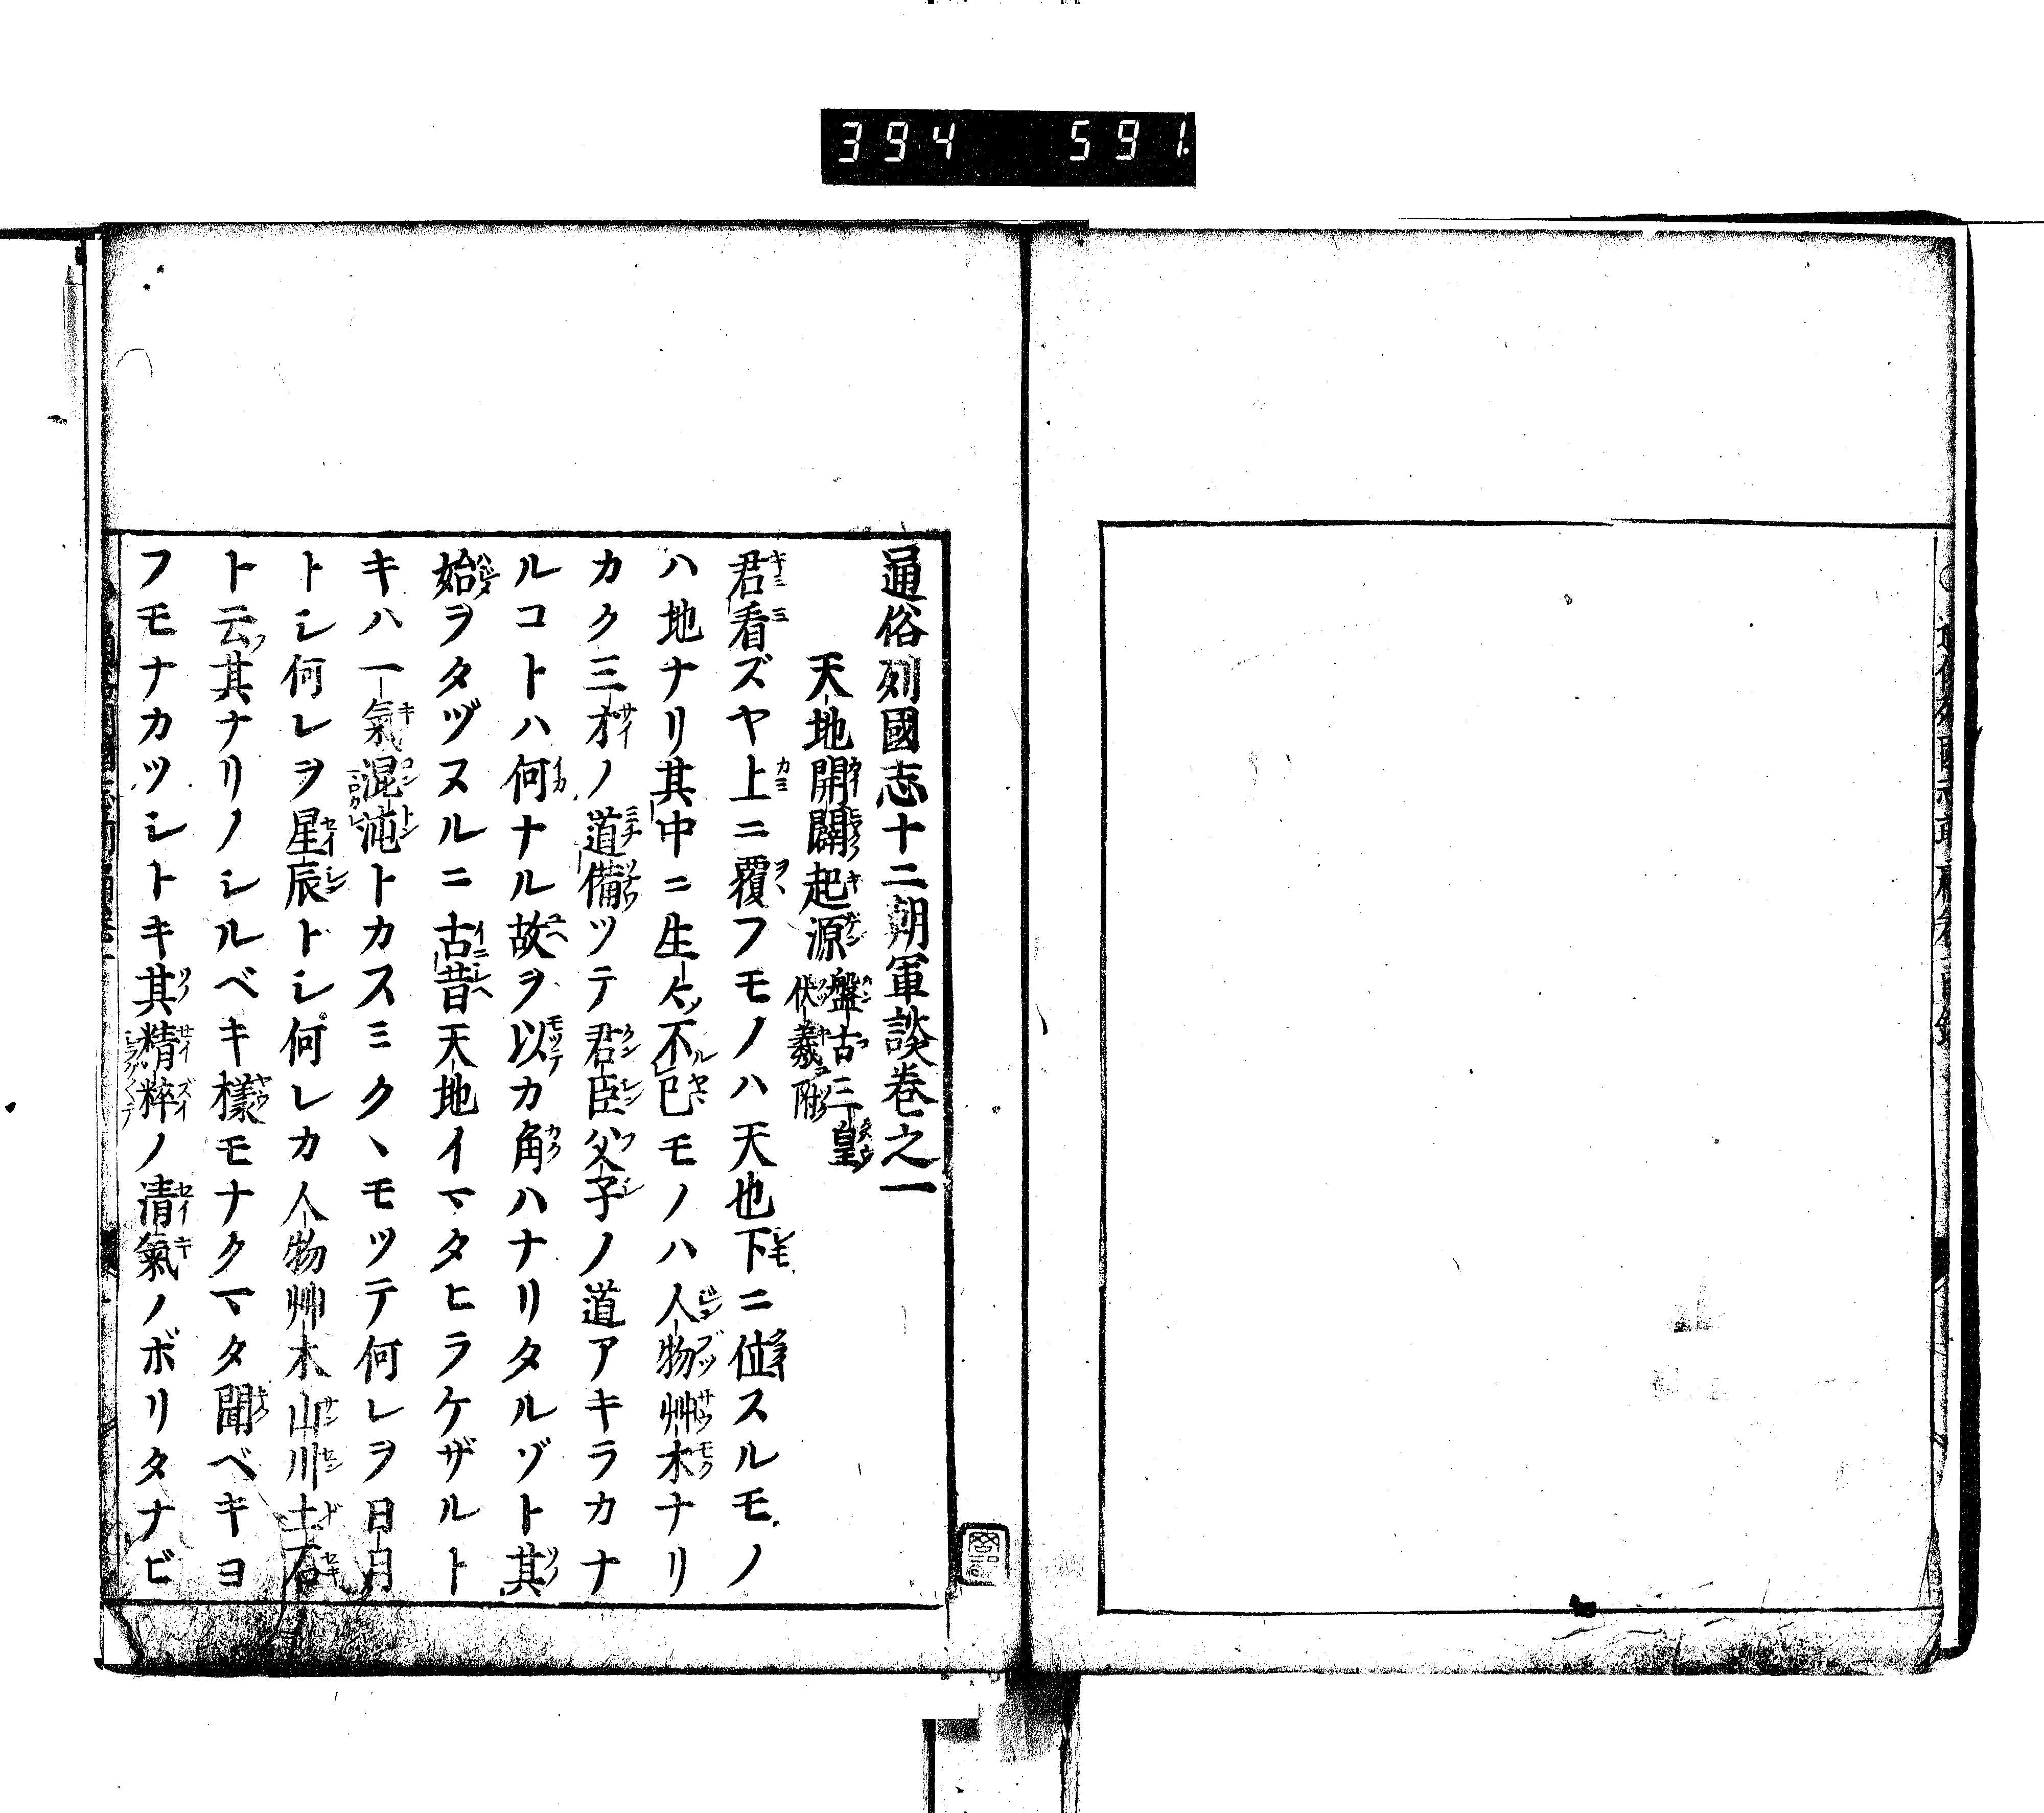 394 591
通俗列國志十二朝軍談卷之一
天地開闢起源 盤古三皇
伏羲附
君看ズヤ上ニ覆フモノハ天也下ニ位スルモノ
ハ地ナリ其中ニ生〻不已モノハ人物艸木ナリ
カク三才ノ道備ツテ君臣父子ノ道アキラカナ
ルコトハ何ナル故ヲ以カ角ハナリタルゾト其
始ヲタヅヌルニ古昔天地イマタヒラケザルト
キハ一氣混沌トカスミクヽモツテ何レヲ日月
トシ何レヲ星辰トシ何レカ人物艸木山川土石
ト云其ナリノシルベキ樣モナクマタ聞ベキヨ
フモナカツシトキ其精粹ノ清氣ノボリタナビ